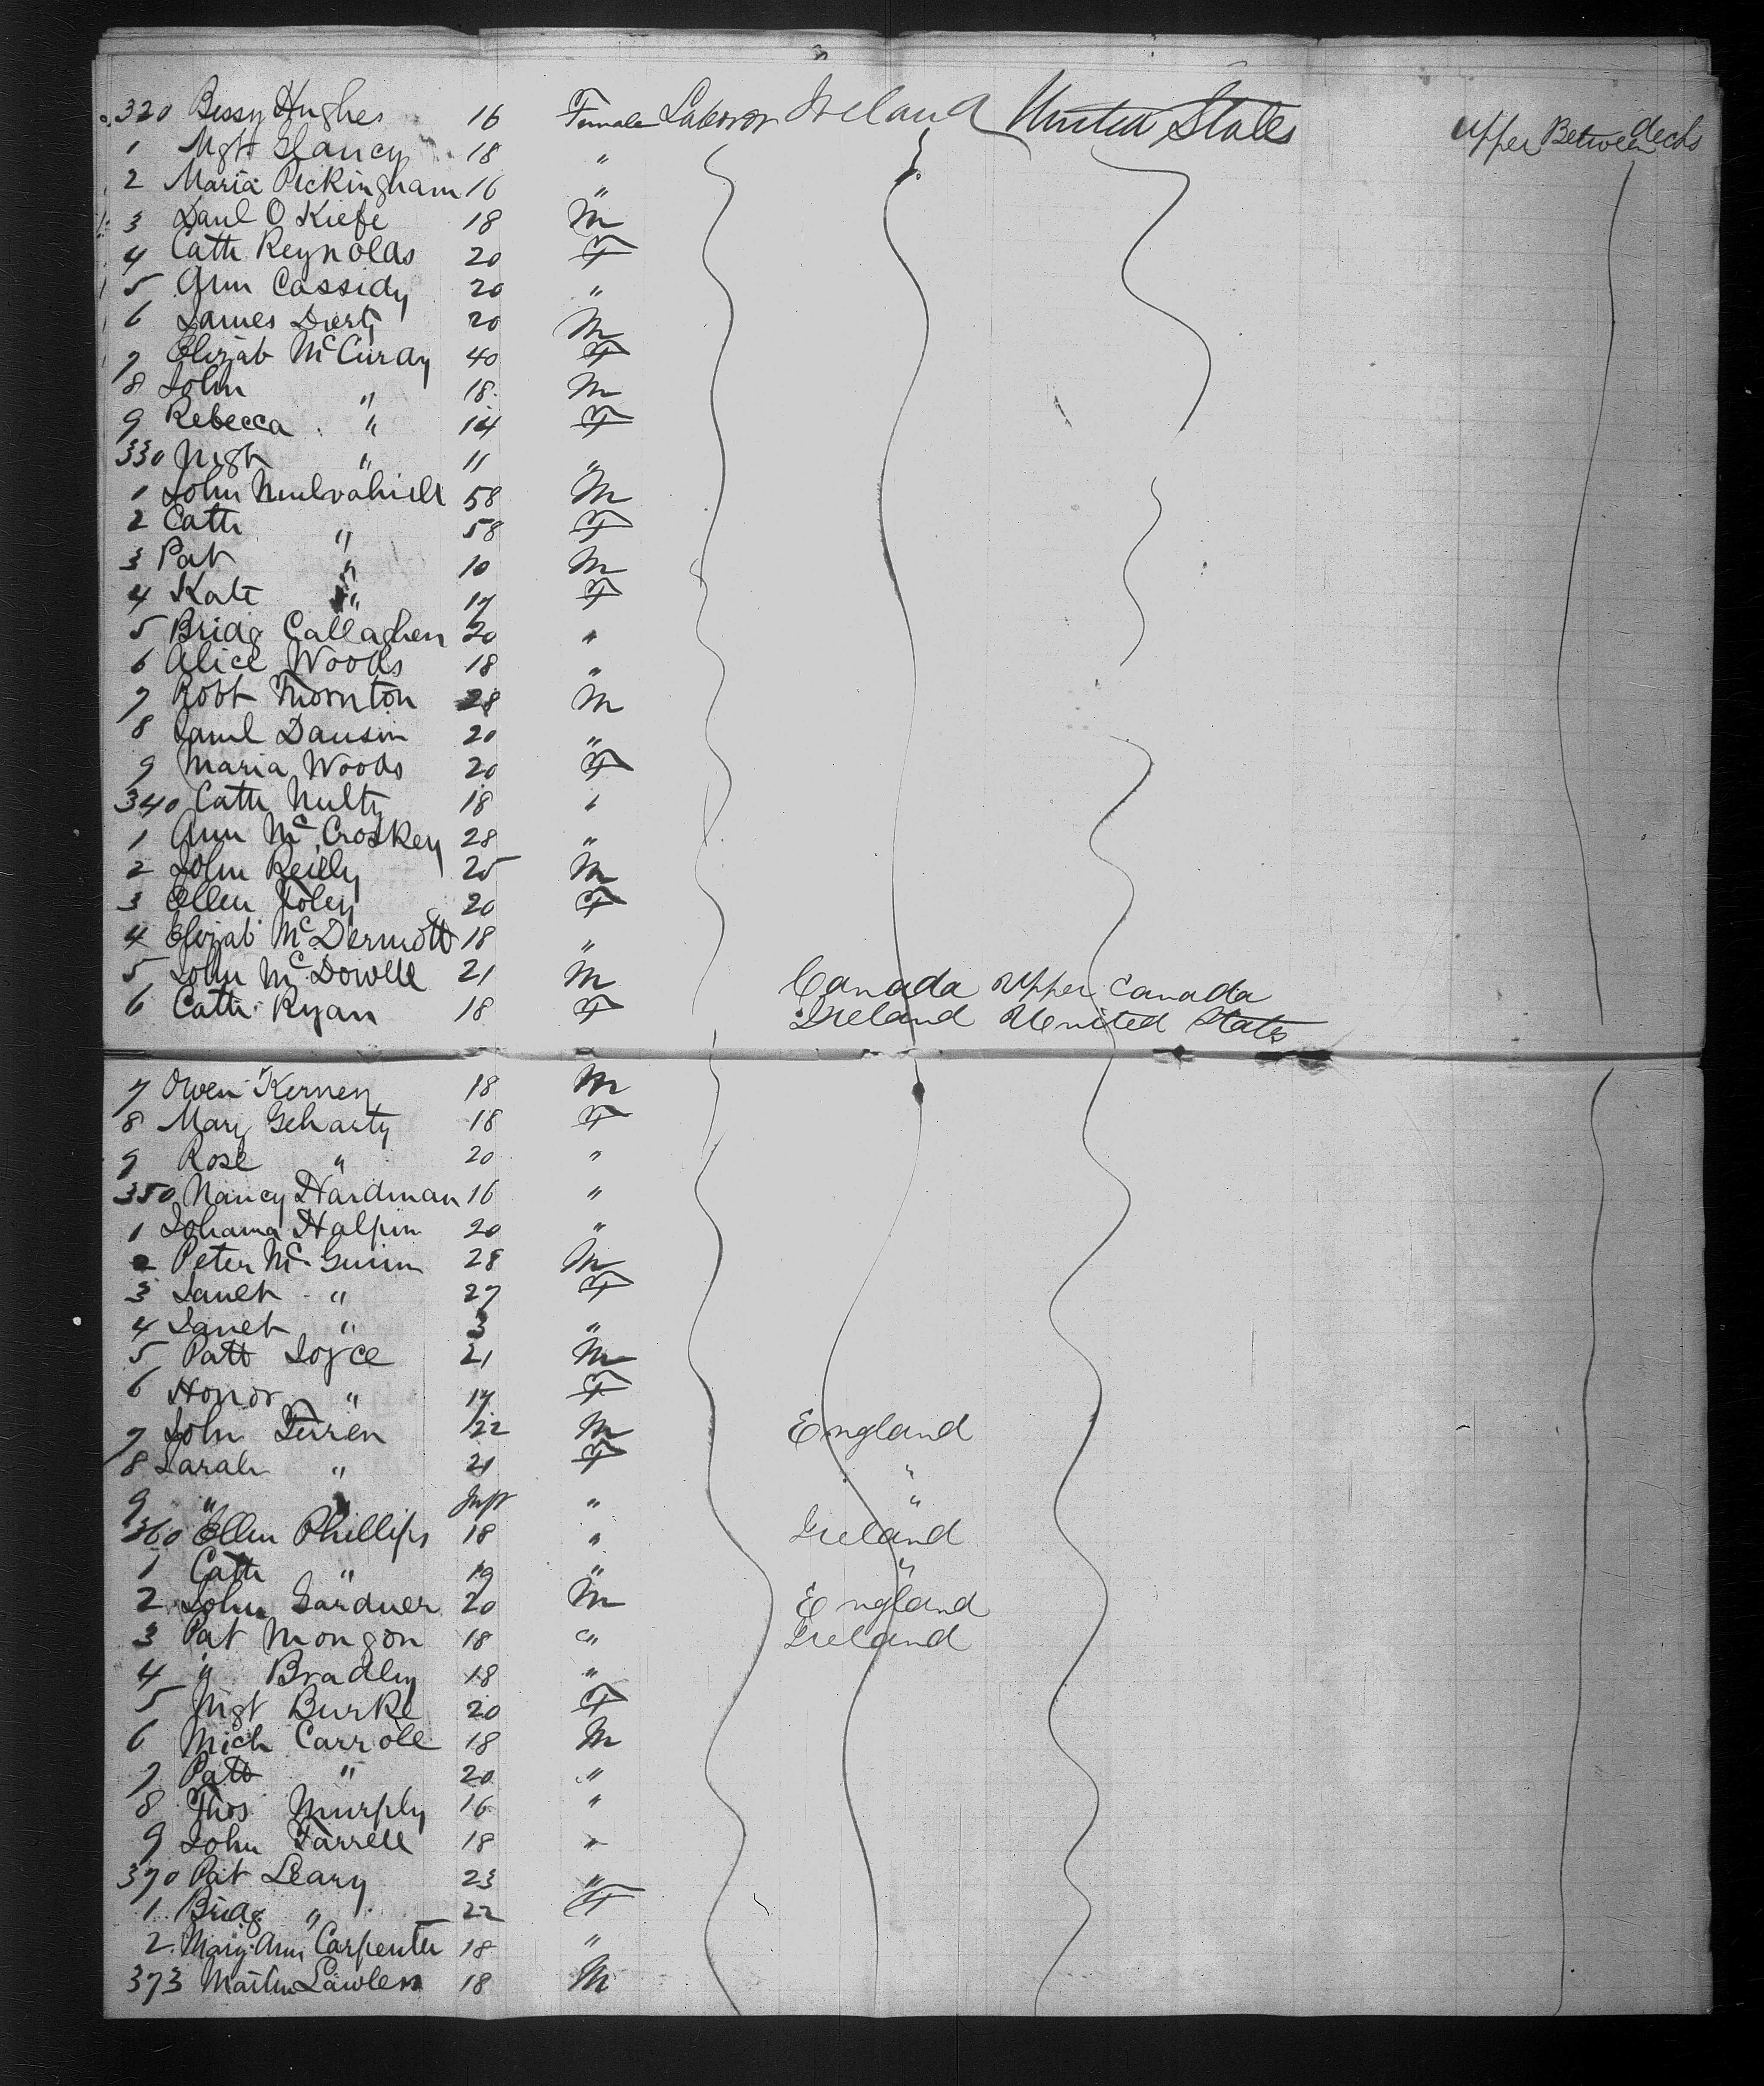 320 Bessy Hughes 16 Female Laboror Ireland United States Upper Between decks
1 Mgt Glancy 18 "
2 Maria Pickingham 16 "
3 Danl O Kiefe 18 M
4 Cath Reynolds 20 F
5 Ann Cassidy 20 "
6 James 20 M
7 Elizab McCurdy 40 F
8 John " 18 M
9 Rebecca " 14 F
330 Mgt " 11 "
1 John Mulvahill 58 M
2 Cath " 58 F
3 Pat " 10 M
4 Kate " 17 F
5 Bridg Callaghen 20 "
6 Alice Woods 18 "
7 Robt Thornton 28 M
8 20 "
9 Maria Woods 20 F
340 Cath Nulty 18 "
1 Ann McCroskey 28 "
2 John Reilly 25 M
3 Ellen Foley 20 F
4 Elizab McDermott 18 "
5 John McDowell 21 M Canada Upper Canada
6 Cath Ryan 18 F Ireland United States
7 Owen Kernen 18 M
8 Mary Geharty 18 F
9 Rose " 20 "
350 Nancy Hardman 16 "
1 Johanna Halpin 20 "
2 Peter McGuinn 28 M
3 Janet " 27 F
4 Janet " 3 "
5 Patt Joyce 21 M
6 Honor " 17 F
7 John 22 M England
8 Sarah " 21 F "
9 " " Inft " "
360 Ellen Phillips 18 " Ireland
1 Cath " 19 " "
2 John Gardner 20 M England
3 Pat Mongon 18 " Ireland
4 " Bradley 18 "
5 Mgt Burke 20 F
6 Mich Carroll 18 M
7 Patt " 20 "
8 Thos Murphy 16 "
9 John Farrell 18 "
370 Pat Leary 23 "
1 Bridg " 22 F
2 Mary Ann Carpenter 18 "
373 Martin Lawless 18 M